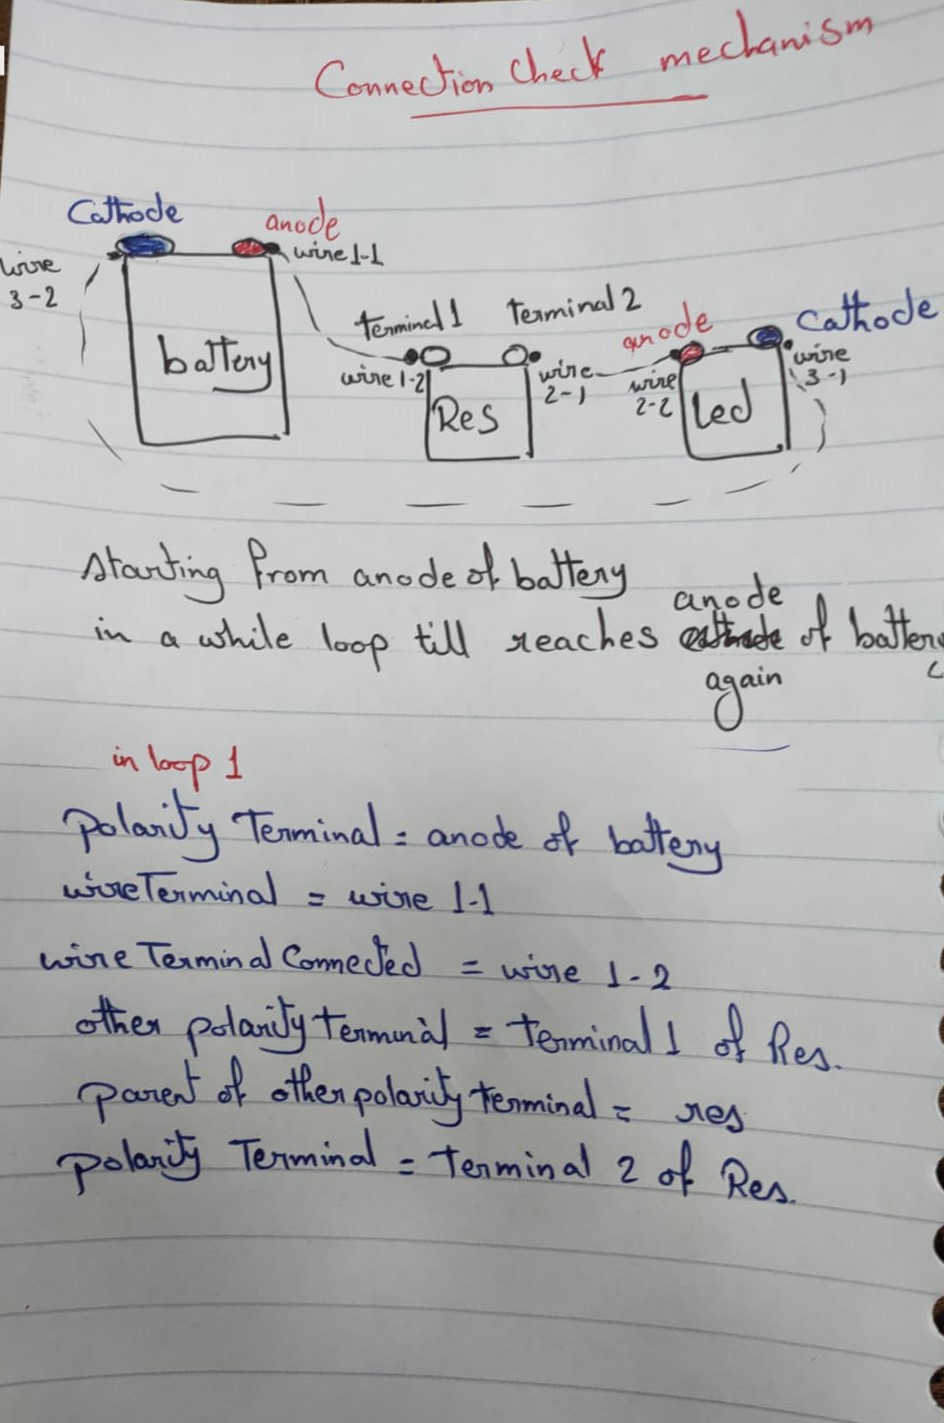 Connection Check mechanism
Cathode
anode
wire
3-2
wire 1-1
battery
terminal 1
Terminal 2
wire 1-2
Res
wire
2-1
anode
Cathode
wire
2-2
wire
3-1
Led
Starting from anode of battery
in a while loop till reaches anode of battery
again
in loop 1
Polarity Terminal = anode of battery
wireTerminal = wire 1-1
wire Terminal Connected = wire 1-2
other polarity terminal = terminal 1 of Res.
parent of other polarity terminal = res
polarity Terminal = terminal 2 of Res.